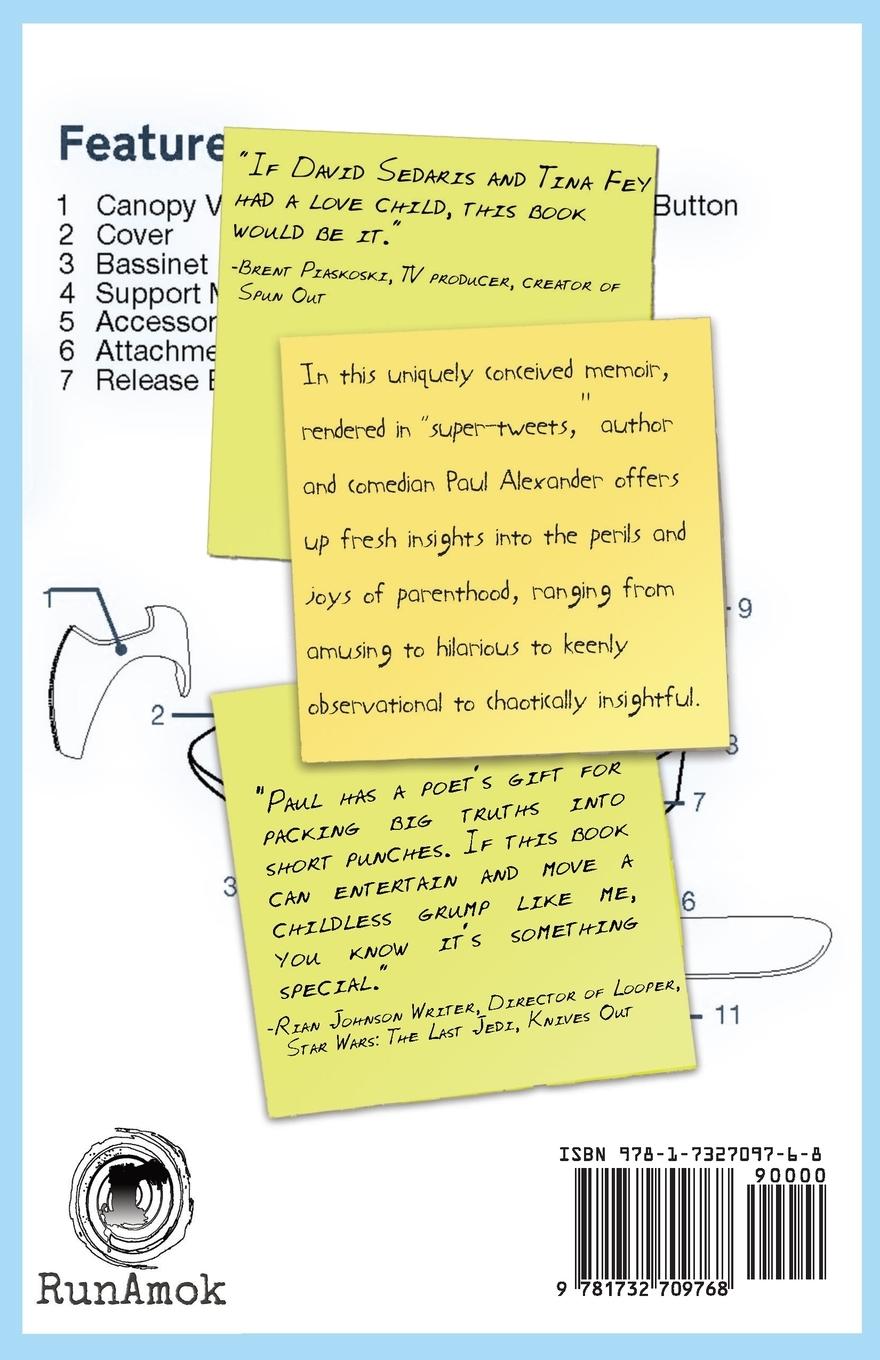 Feature
1 Canopy V
2 Cover
3 Bassinet
4 Support
5 Accessor
6 Attachme
7 Release
Button
"If David Sedaris and Tina Fey
had a love child, this book
would be it."
-Brent Piaskoski, TV producer, creator of
Spun Out
In this uniquely conceived memoir,
rendered in "super-tweets," author
and comedian Paul Alexander offers
up fresh insights into the perils and
joys of parenthood, ranging from
amusing to hilarious to keenly
observational to chaotically insightful.
1
9
2
3
7
3
6
11
"Paul has a poet's gift for
packing big truths into
short punches. If this book
can entertain and move a
childless grump like me,
you know it's something
special."
-Rian Johnson Writer, Director of Looper,
Star Wars: The Last Jedi, Knives Out
RunAmok
ISBN 978-1-7327097-6-8
90000
9 781732 709768